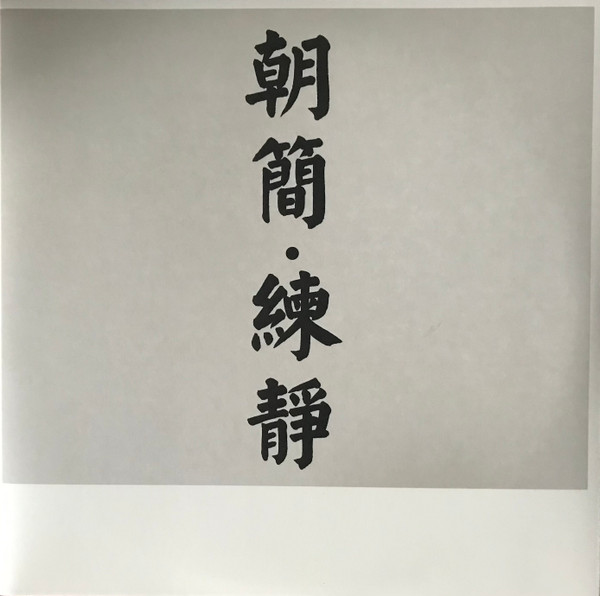 朝簡・練靜